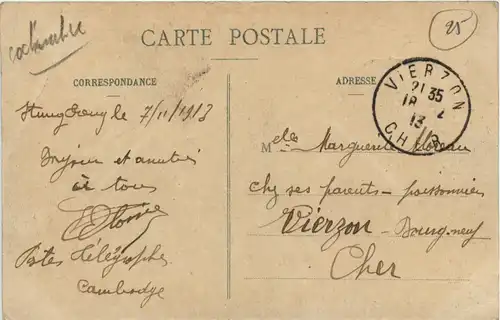 25
CARTE POSTALE
CORRESPONDANCE
ADRESSE
VIERZON
21 35
18 2
13
CHER
Stung Treng le 7/11/1913
Bonjour et amitiés
à tous
Postes Télégraphe
Cambodge
Melle Marguerite
chez ses parents - poissonnier
Vierzon - Bourgneuf
Cher